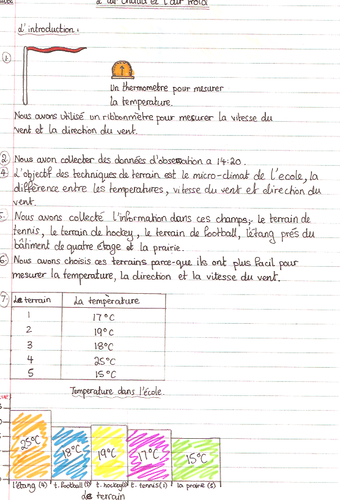 L'air chaud et l'air froid
d'introduction:
①
Un thermomètre pour mesurer
la temperature.
Nous avons utilisé un ribbonmètre pour mesurer la vitesse du
vent et la direction du vent.
② Nous avon collecter des données d'observation a 14:20.
④ L'objectif des techniques de terrain est le micro-climat de l'ecole, la
différence entre les temperatures, vitesse du vent et direction du
vent.
5. Nous avons collecté l'information dans ces champs; le terrain de
tennis, le terrain de hockey, le terrain de football, l'étang prés du
bâtiment de quatre étage et la prairie.
⑥ Nous avons choisis ces terrains parce-que ils ont plus facil pour
mesurer la temperature, la direction et la vitesse du vent.
⑦ Le terrain La température
1 17°C
2 19°C
3 18°C
4 25°C
5 15°C
Temperature dans l'école
25°C 18°C 19°C 17°C 15°C
l'étang (4) t. football t. hockey t. tennis (1) la prairie (5)
de terrain